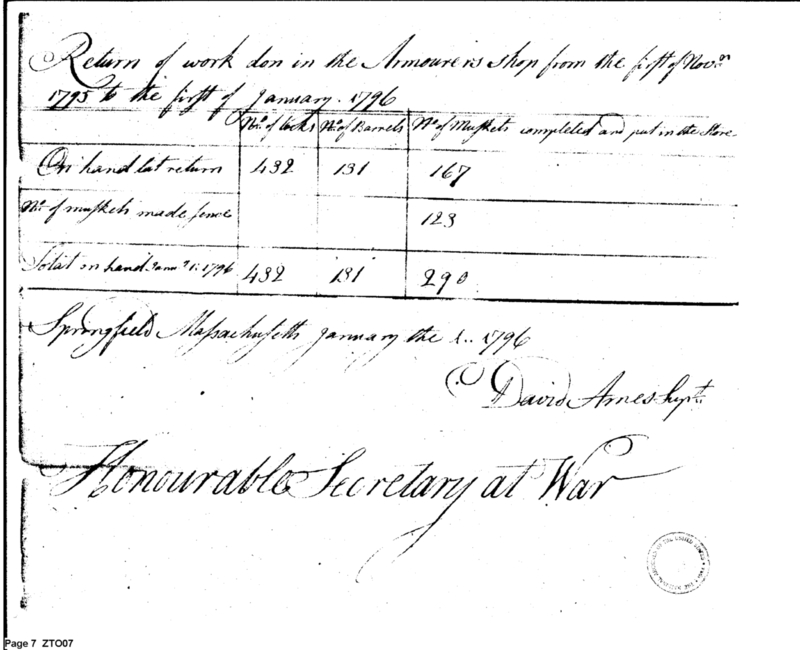 Return of work don in the Armourers shop from the first of Nov.r
1795 to the first of January. 1796
No. of locks No. of Barrels No. of Muskets completed and put in the Store
On hand last return 432 131 167
No. of muskets made sence 123
Total on hand Janry 1st 1796 432 131 290
Springfield Massachusetts January the 1.. 1796
David Ames Supt.
Honourable Secretary at War
Page 7 ZTO07